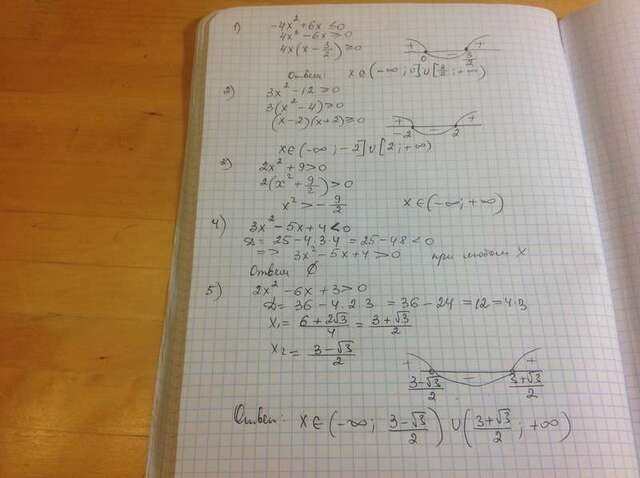 1) -4x² + 6x ≤ 0
4x² - 6x ≥ 0
4x(x - 3/2) ≥ 0
+ - +
0 3/2
Ответ: x ∈ (-∞; 0] ∪ [3/2; +∞)
2) 3x² - 12 ≥ 0
3(x² - 4) ≥ 0
(x-2)(x+2) ≥ 0
+ - +
-2 2
x ∈ (-∞; -2] ∪ [2; +∞)
3) 2x² + 9 > 0
2(x² + 9/2) > 0
x² > - 9/2
x ∈ (-∞; +∞)
4) 3x² - 5x + 4 < 0
D = 25 - 4·3·4 = 25 - 48 < 0
=> 3x² - 5x + 4 > 0 при любом x
Ответ ∅
5) 2x² - 6x + 3 > 0
D = 36 - 4·2·3 = 36 - 24 = 12 = 4·3
x₁ = (6 + 2√3)/4 = (3 + √3)/2
x₂ = (3 - √3)/2
+ - +
(3-√3)/2 (3+√3)/2
Ответ: x ∈ (-∞; (3-√3)/2) ∪ ((3+√3)/2; +∞)